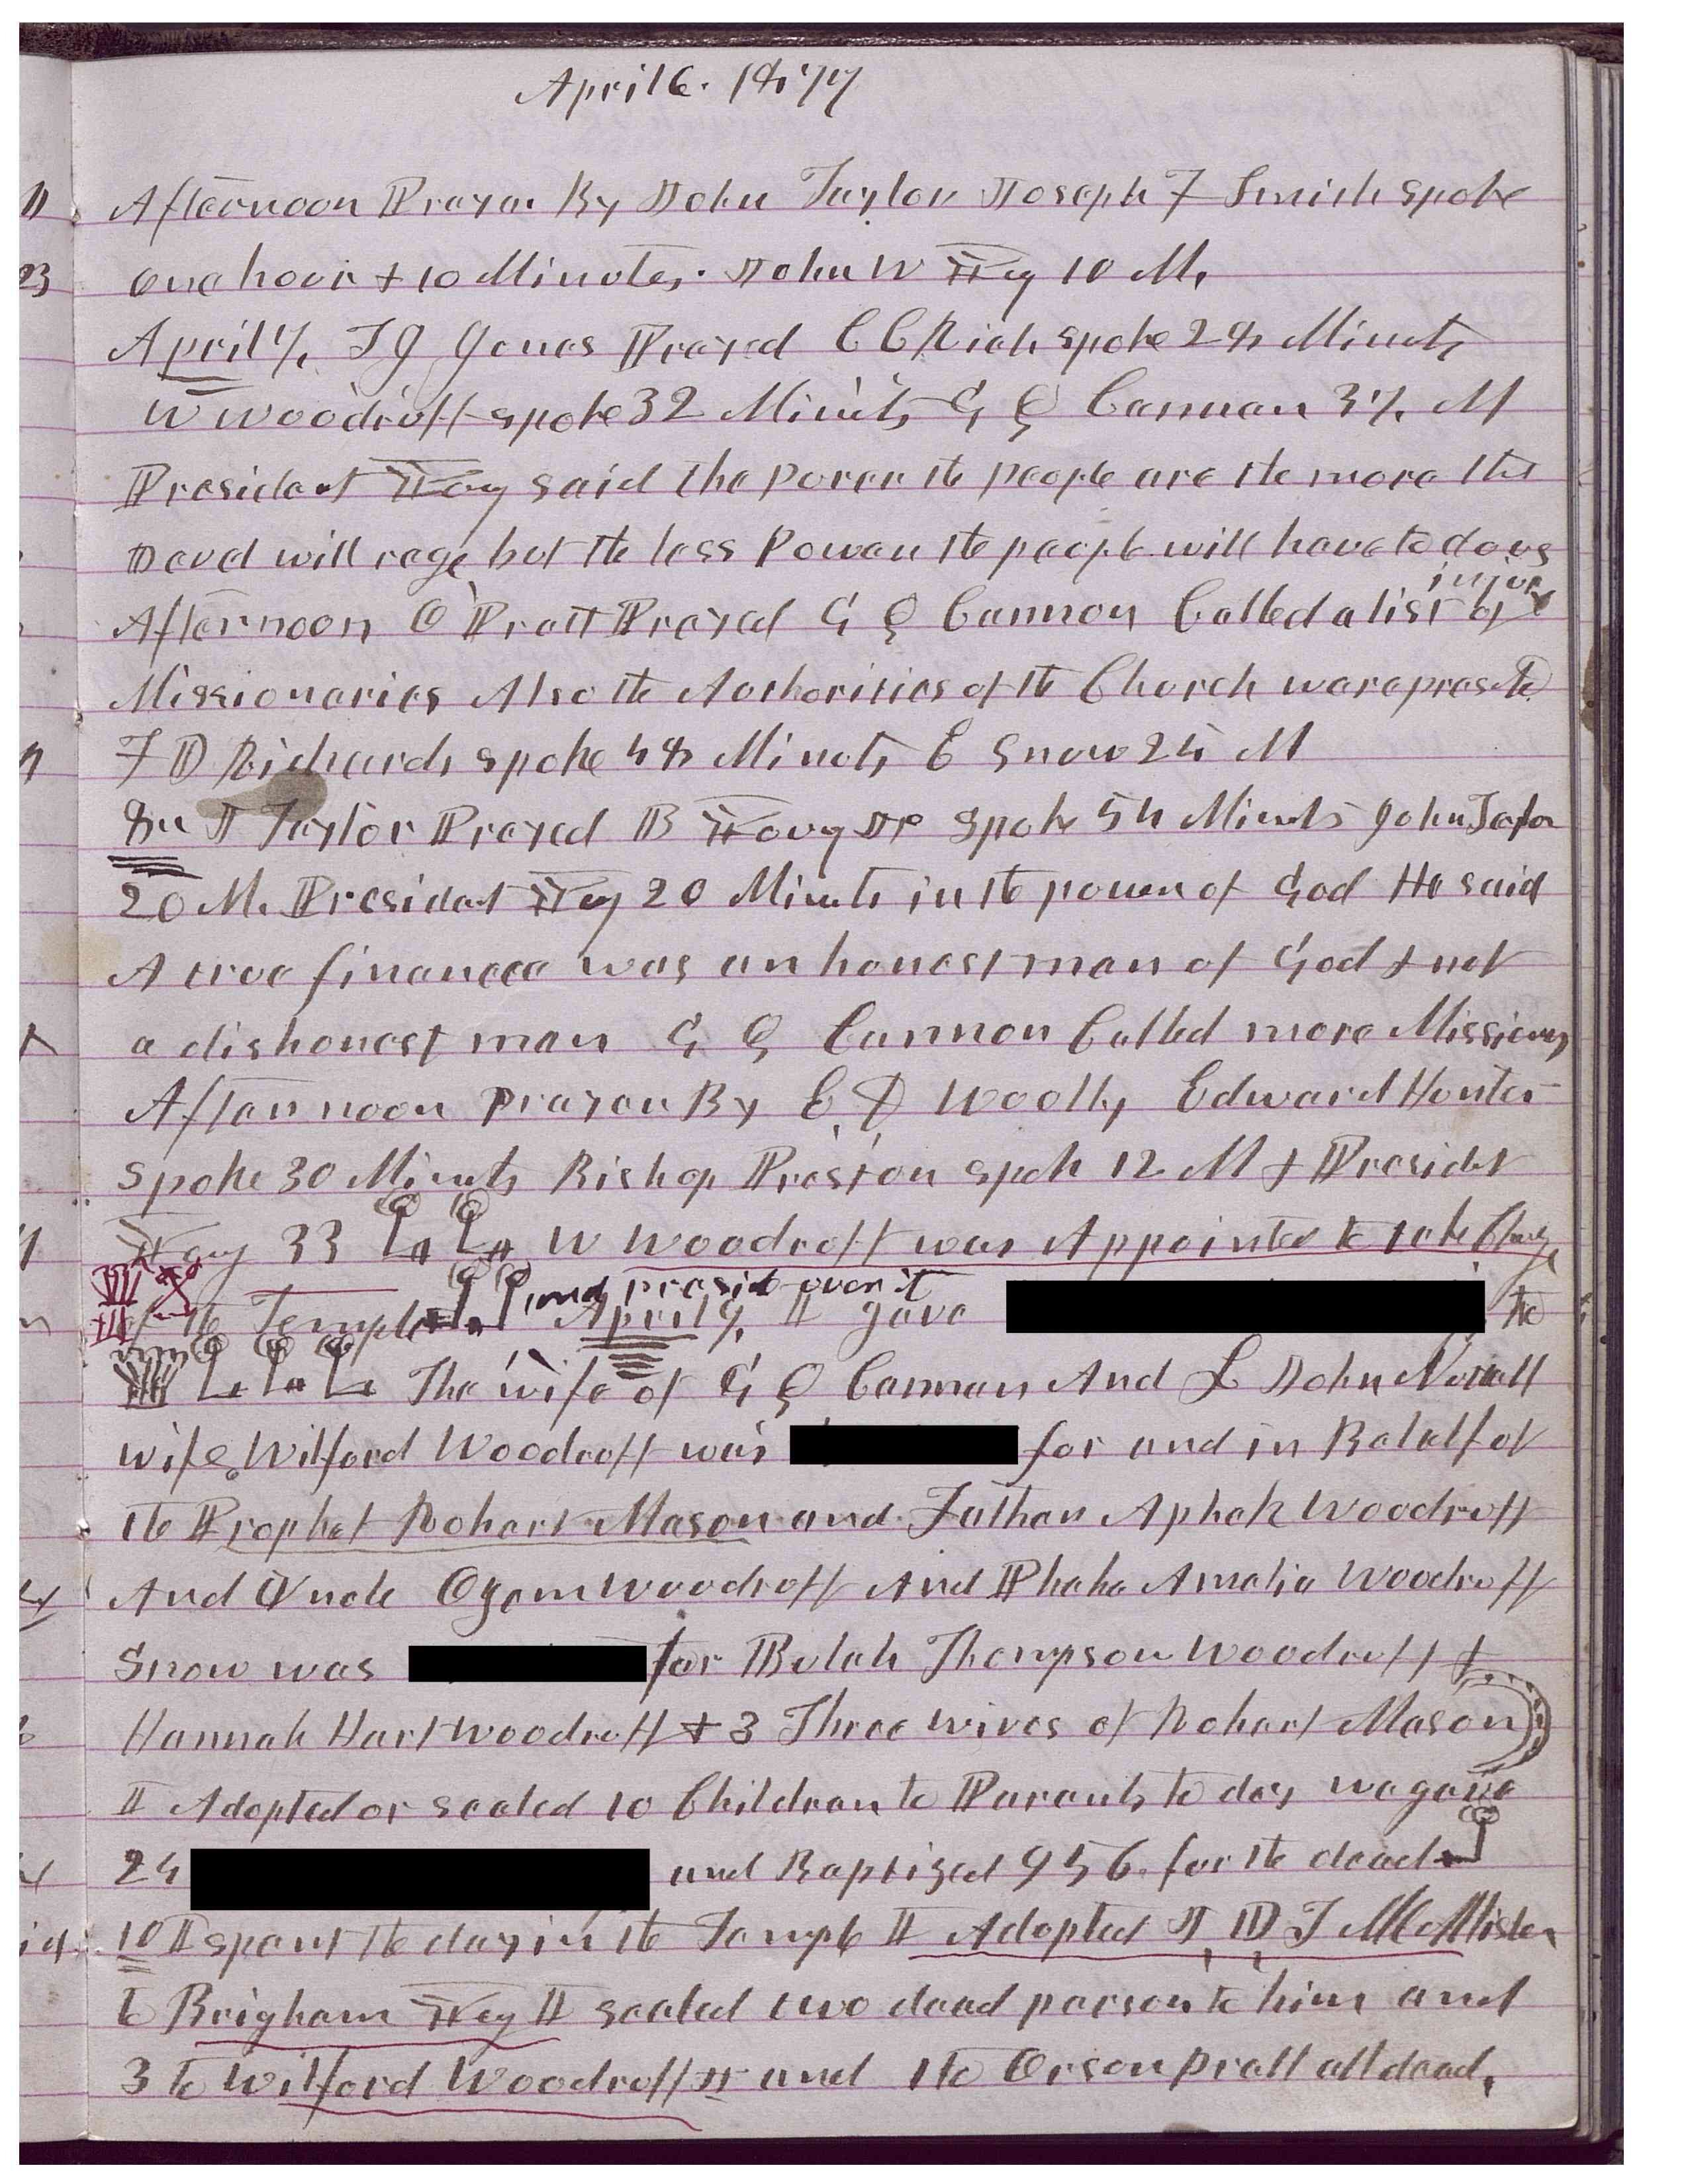 April 6. 1877
Afternoon Prayer By John Taylor Joseph F Smith spoke
one hour & 10 Minutes. John W Yg 10 M.
April 7, J G Jones Prayed C C Rich spoke 28 Minuts
W Woodruff spoke 32 Minuts G Q Cannon 37. M
President Yog said the Porer the people are the more the
Devel will rage but the less Power the people will have to do us
injury
Afternoon O Pratt Prayed G Q Cannon Called a list of
Missionaries Also the Authorities of the Church ware preste
F D Richards spoke 48 Minuts E Snow 25 M
8th J Taylor Prayed B Young Jr spoke 54 Minuts John Taylor
20 M. President Yg 20 Minuts in the power of God He said
A true financeer was an honest man of God & not
a dishonest man G Q Cannon Called more Missions
Afternoon prayer By E D Woolly Edward Hunter
spoke 30 Minuts Bishop Preston spoke 12 M & President
Yg 33 W Woodruff was Appointed to take Charge
and preside over it
of the Temple April 9, I gave to
The wife of G Q Cannon And L John Nuttall
wife, Wilford Woodruff was for and in Behalf of
the Prophet Robert Mason and Father Aphek Woodruff
And Uncle Ozem Woodruff And Phebe Amelia Woodruff
Snow was for Bulah Thompson Woodruff &
Hannah Hart Woodruff & 3 Three wives of Robert Mason
I Adopted or sealed 10 Children to Parents to day we gave
24 and Baptized 956. for the dead
10 I spent the day in the Temple I Adopted J D T McAllister
to Brigham Yg I sealed two dead person to him and
3 to Wilford Woodruff and 1 to Orson Pratt all dead,